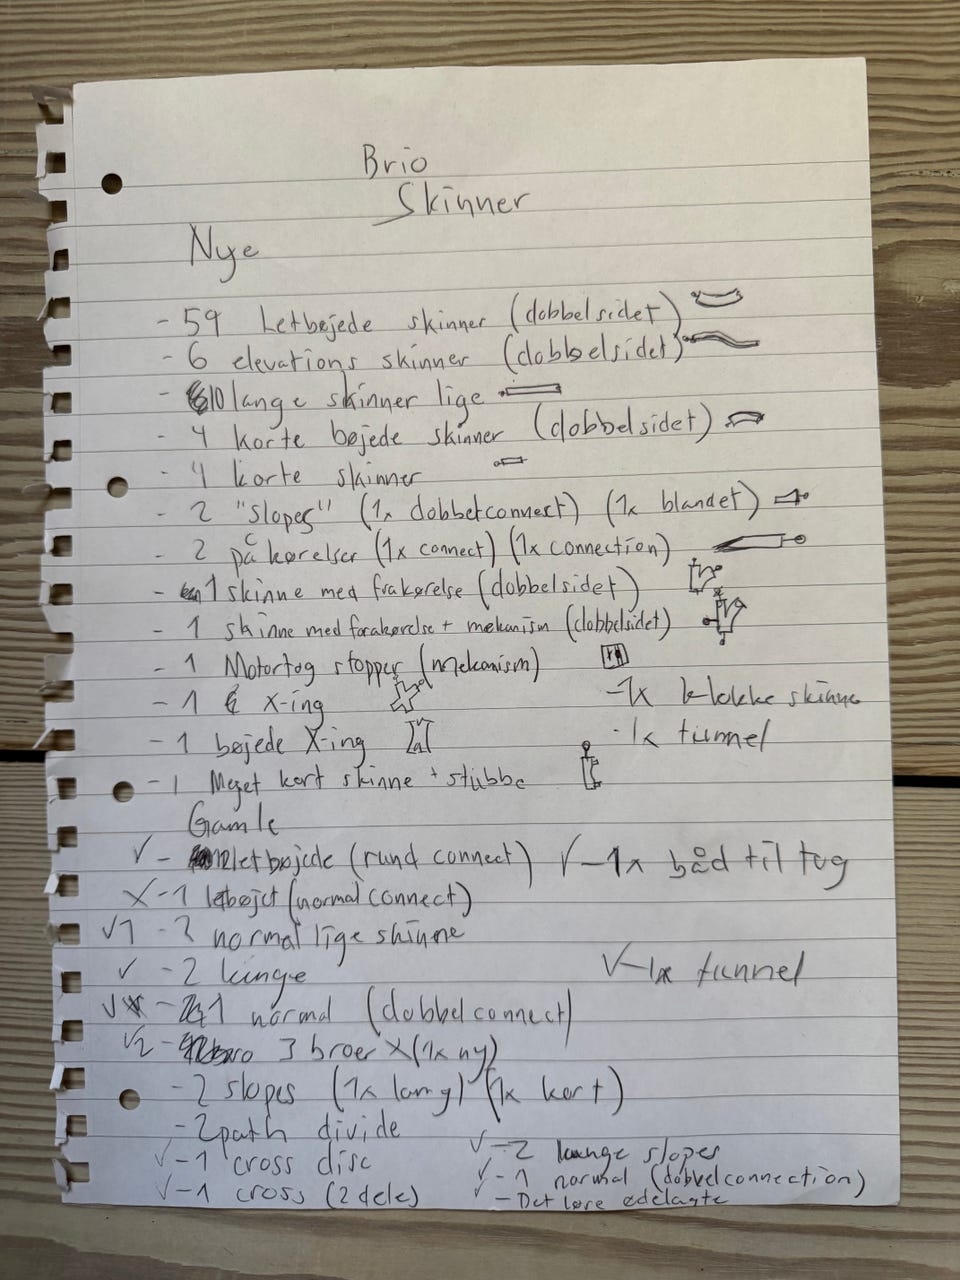 Brio
Skinner
Nye
- 59 Letbøjede skinner (dobbelsidet)
- 6 elevations skinner (dobbelsidet)
- 10 lange skinner lige
- 4 korte bøjede skinner (dobbelsidet)
- 4 korte skinner
- 2 "slopes" (1x dobbetconnect) (1x blandet)
- 2 påkørelser (1x connect) (1x connection)
- 1 skinne med frakørelse (dobbelsidet)
- 1 skinne med forakørelse + mekanism (dobbelsidet)
- 1 Motortog stopper (mekanism)
- 1 X-ing
- 1x klokke skinne
- 1 bøjede X-ing
- 1x tunnel
- 1 Meget kort skinne + stubbe
Gamle
✓ - letbøjede (rund connect)
✓ - 1x båd til tog
X - 1 letbøjet (normal connect)
✓1 - 2 normal lige skinne
✓ - 2 lange
✓ - 1x tunnel
✓ - 1 normal (dobbelconnect)
✓2 - 3 broer X (1x ny)
- 2 slopes (1x lang) (1x kort)
- 2 path divide
✓ - 1 cross disc
✓ - 2 lange slopes
✓ - 1 cross (2 dele)
✓ - 1 normal (dobbelconnection)
✓ - Det løre ødelagte